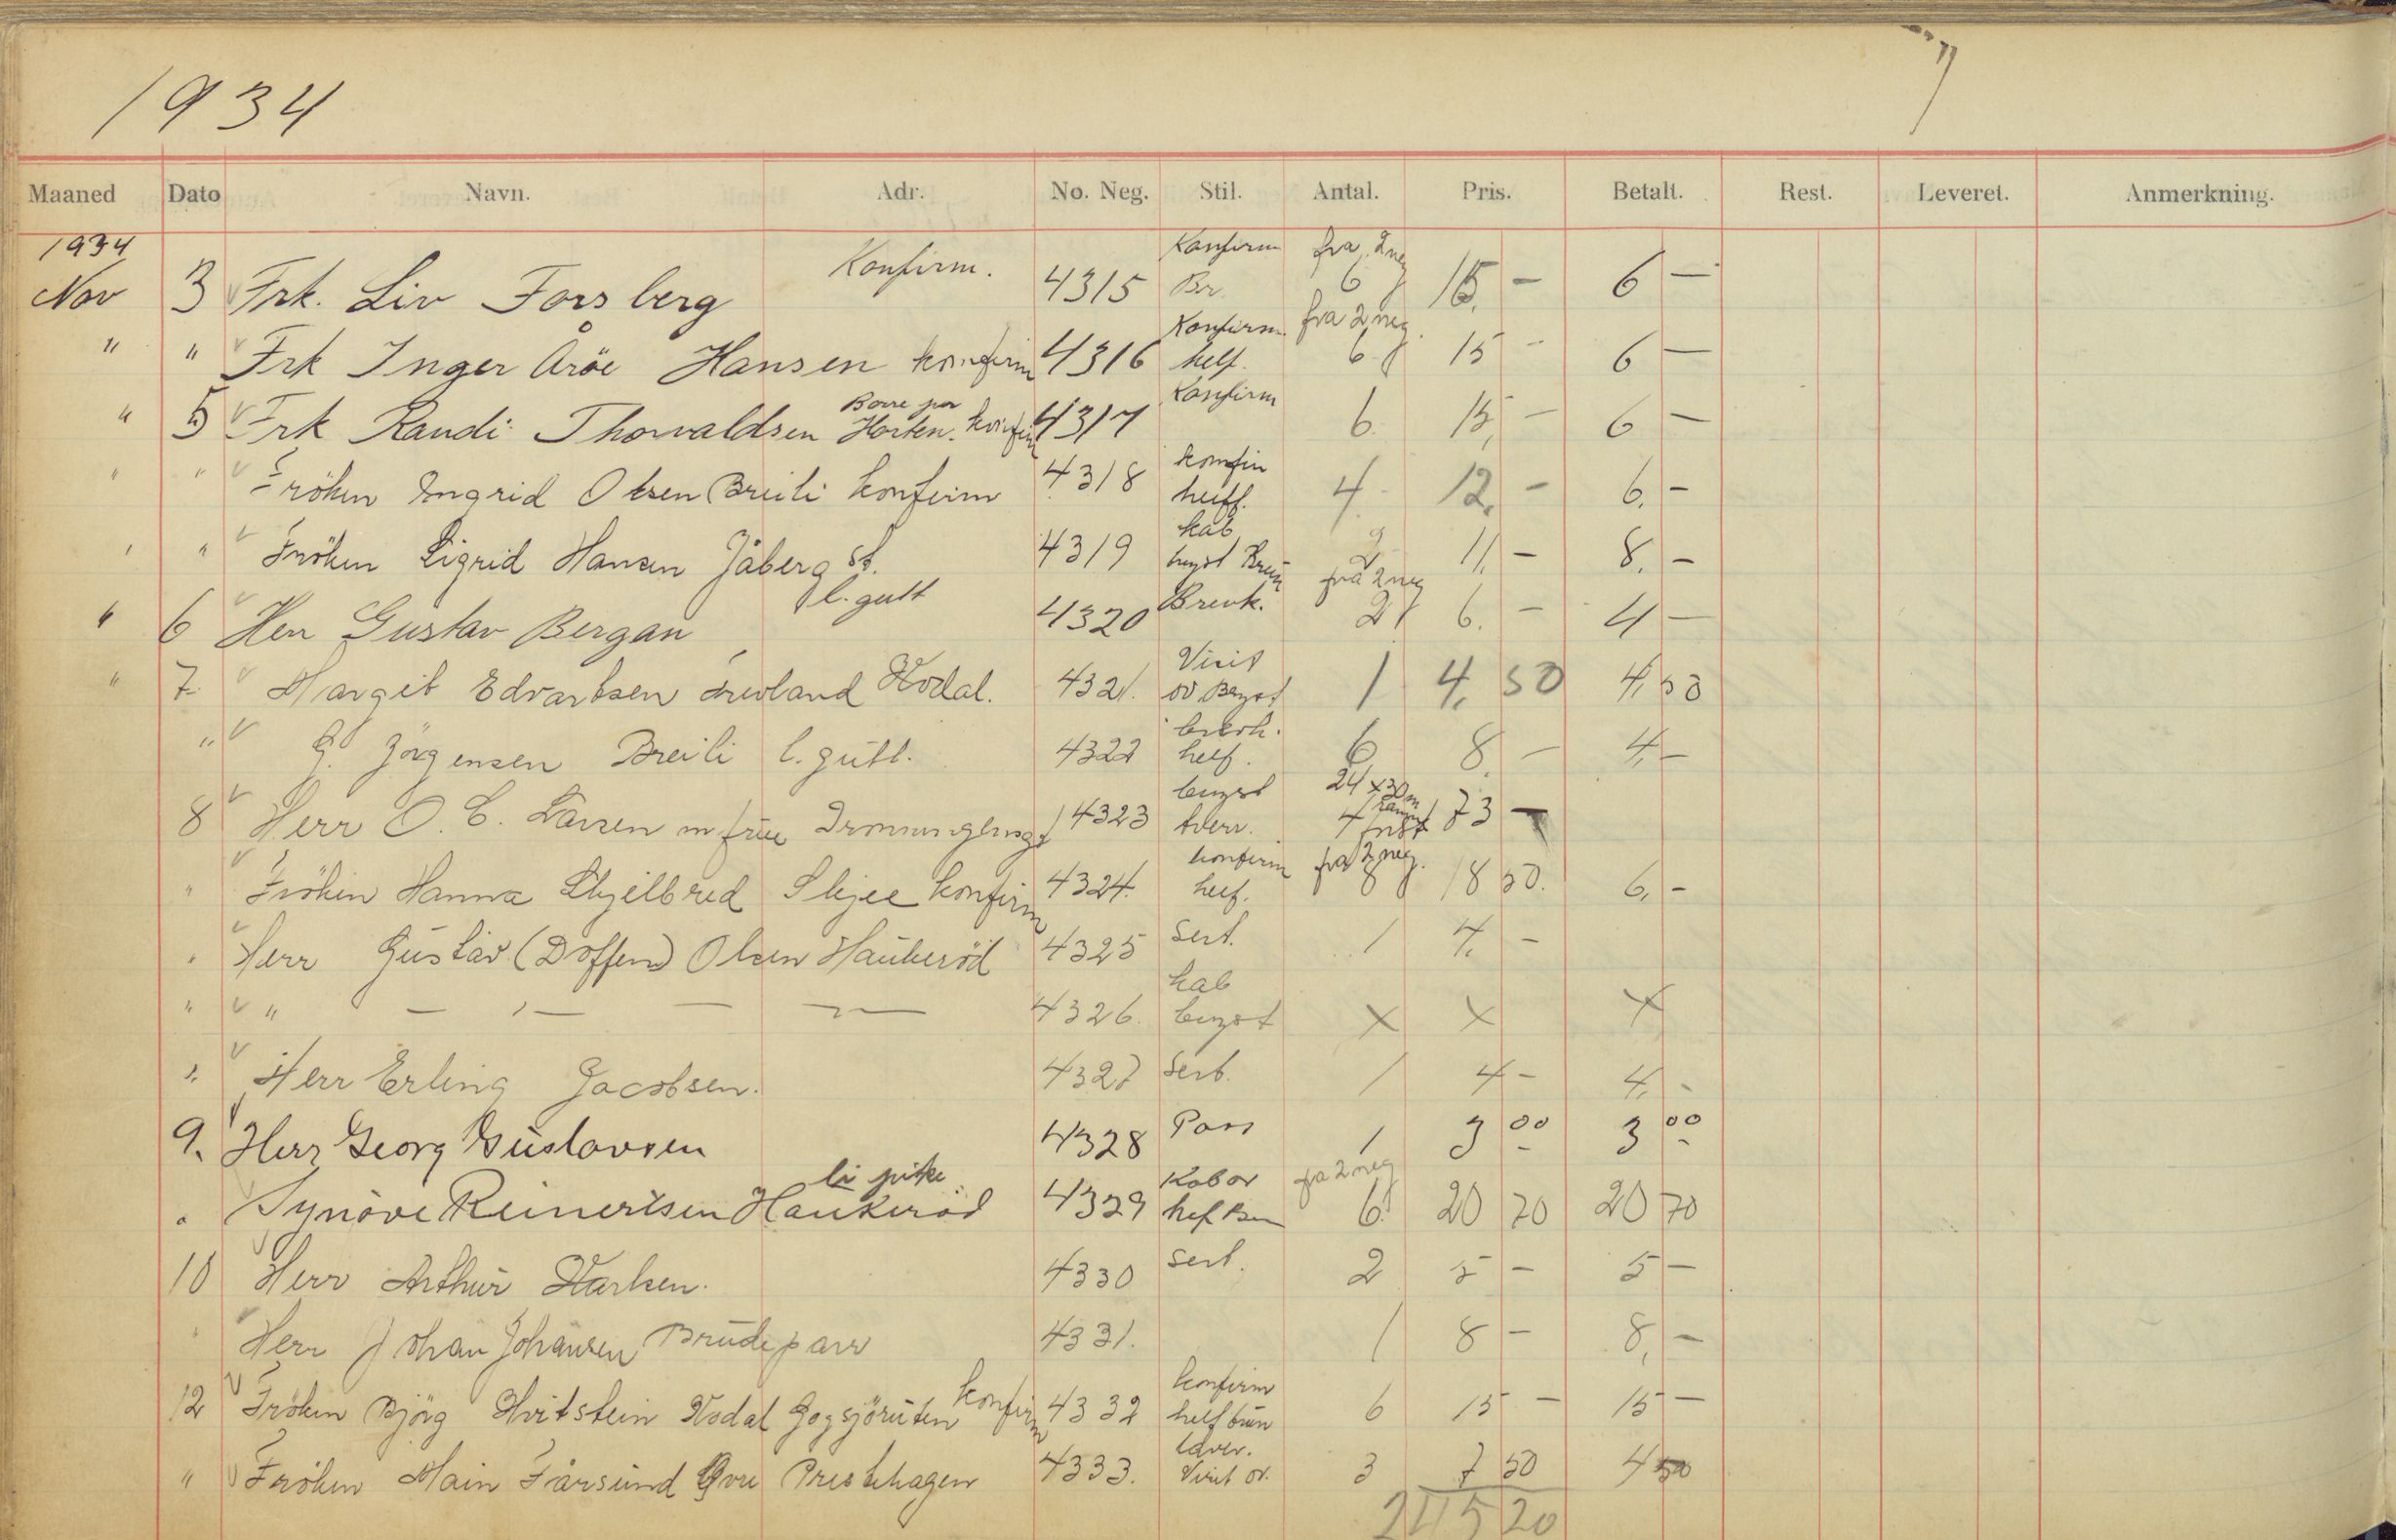 1934
Maaned Dato Navn. Adr. No. Neg. Stil. Antal. Pris. Betalt. Rest. Leveret. Anmerkning.
1934
Nov 3 Frk. Liv Forsberg Konfirm. 4315 Konfirm Br. fra 2 neg 6 15, — 6 —
" " Frk Inger Aröe Hansen konfirm 4316 Konfirm helf. fra 2 neg. 6 15 - 6 —
" 5 Frk Randi Thorvaldsen Borre pr Horten. konfirm 4317 Konfirm 6. 15, — 6 —
" " Fröken Ingrid Olsen Breili konfirm 4318 konfir helff. 4. 12, - 6. -
" " Fröken Sigrid Hansen Jåberg St. 4319 kab 11, - 8. -
" 6 Herr Gustav Bergan l. gutt 4320 Brevk. fra 2 neg 2 6. - 4 —
" 7 Margit Edvartsen Kodal. 4321. Visit 1 4, 50 4, 50
" G. Jörgensen Breili l. gutt. 4322 brevk. helf. 6 8. — 4, —
8 Herr O. C. Larsen m frue 4323 bryst tverr. 24 x 30 m 73 —
" Fröken Hanna Skjelbred Skjee konfirm 4324. konfirm helf. fra 2 neg. 8 18 50. 6, -
" Herr Gustav (Doffen) Olsen Haukeröd 4325 Sert. 1 4, -
" " — — — — 4326. kab bryst x x x
" Herr Erling Jacobsen. 4327 Sert. 1 4 - 4, -
9. Herr Georg Gustavsen 4328 Pass 1 3 00 3 00
" Synöve Reinertsen Haukeröd li pike. 4329 Kab ov helf Br fra 2 neg 6 20 70 20 70
10 Herr Arthur Karlsen. 4330 sert. 2 5 - 5 —
" Herr Johan Johansen Brudeparr 4331. 1 8 - 8, —
12 Fröken Björg Hvitstein Kodal Gogsjöruten konfirm 4332 konfirm helf brun 6 15 - 15 —
" Fröken Main Fårsund Øvre Presthagen 4333. Visit ov. 3 7 50 4 50
245 20